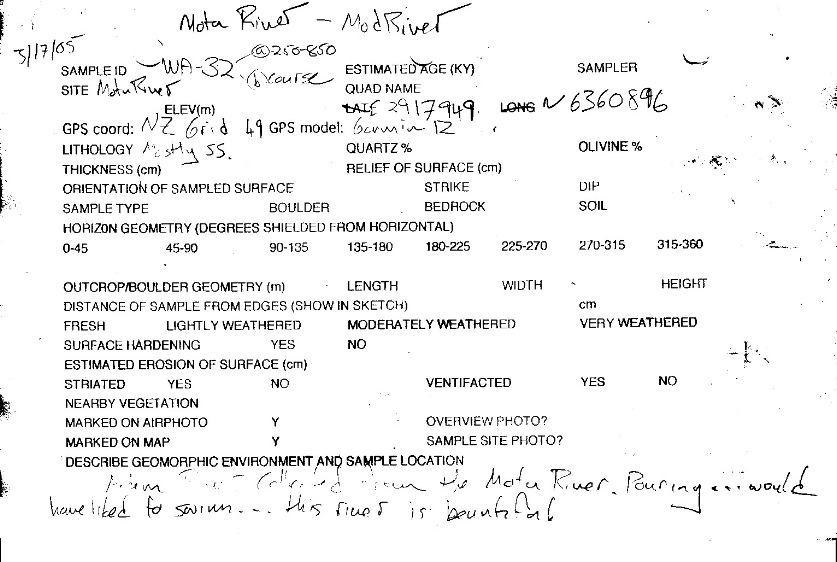 Motu River - Mod River
3/17/05
@ 250-850
SAMPLE ID WA-32 (b) course ESTIMATED AGE (KY) SAMPLER
SITE Motu River QUAD NAME
ELEV(m) LATE 2917949 LONG N 6360896
GPS coord: NZ Grid 49 GPS model: Garmin 12
LITHOLOGY Mostly SS. QUARTZ % OLIVINE %
THICKNESS (cm) RELIEF OF SURFACE (cm)
ORIENTATION OF SAMPLED SURFACE STRIKE DIP
SAMPLE TYPE BOULDER BEDROCK SOIL
HORIZON GEOMETRY (DEGREES SHIELDED FROM HORIZONTAL)
0-45 45-90 90-135 135-180 180-225 225-270 270-315 315-360
OUTCROP/BOULDER GEOMETRY (m) LENGTH WIDTH HEIGHT
DISTANCE OF SAMPLE FROM EDGES (SHOW IN SKETCH) cm
FRESH LIGHTLY WEATHERED MODERATELY WEATHERED VERY WEATHERED
SURFACE HARDENING YES NO
ESTIMATED EROSION OF SURFACE (cm)
STRIATED YES NO VENTIFACTED YES NO
NEARBY VEGETATION
MARKED ON AIRPHOTO Y OVERVIEW PHOTO?
MARKED ON MAP Y SAMPLE SITE PHOTO?
DESCRIBE GEOMORPHIC ENVIRONMENT AND SAMPLE LOCATION
Collected from the Motu River. Pouring ... would
have liked to swim... this river is bountiful